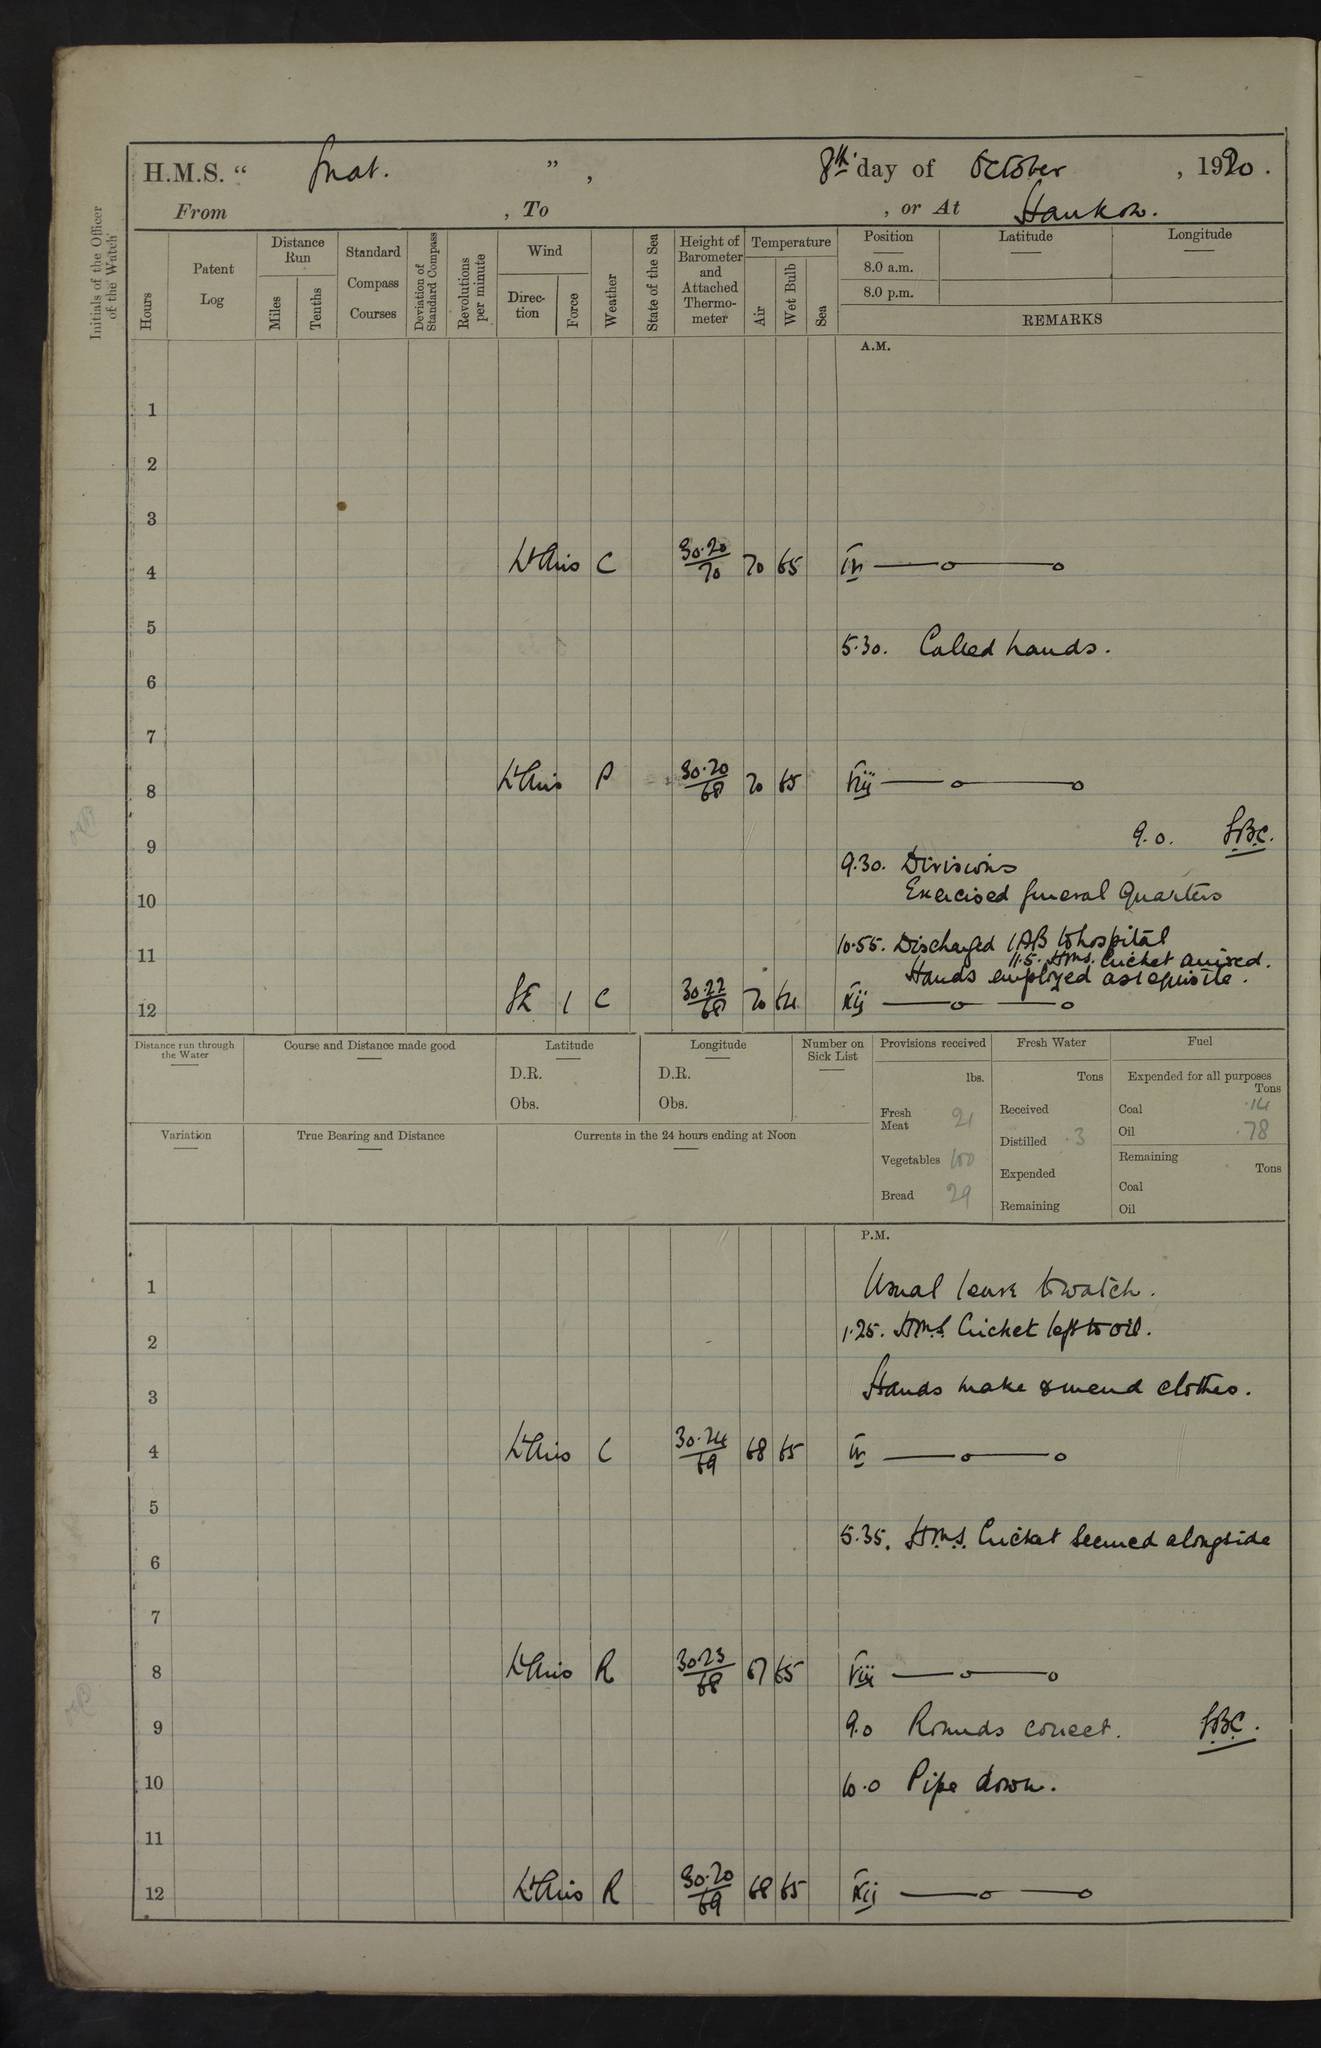 H.M.S. “ Gnat. ”, 8th day of October, 1920.
From , To , or At Hankow.
Initials of the Officer of the Watch
Hours
Patent Log
Distance Run
Miles
Tenths
Standard Compass Courses
Deviation of Standard Compass
Revolutions per minute
Wind
Direction
Force
Weather
State of the Sea
Height of Barometer and Attached Thermometer
Temperature
Air
Wet Bulb
Sea
Position Latitude Longitude
8.0 a.m.
8.0 p.m.
REMARKS
A.M.
1
2
3
4 Lt Airs C 30.20/70 70 65 IV
5
5.30. Called hands.
6
7
8 Lt Airs P 30.20/68 70 65 VIII
9.0. S.B.C.
9
9.30. Divisions
Exercised General Quarters
10
10.55. Discharged 1 AB to hospital
11.5. H.M.S. Cricket arrived.
11
Hands employed as requisite.
12 SE 1 C 30.22/68 70 64 XII
Distance run through the Water
Course and Distance made good
Latitude
D.R.
Obs.
Longitude
D.R.
Obs.
Number on Sick List
Provisions received
lbs.
Fresh Meat 21
Vegetables 100
Bread 29
Fresh Water
Tons
Received
Distilled .3
Expended
Remaining
Fuel
Expended for all purposes
Tons
Coal .14
Oil .78
Remaining
Tons
Coal
Oil
Variation
True Bearing and Distance
Currents in the 24 hours ending at Noon
P.M.
1 Usual leave to watch.
1.25. H.M.S. Cricket left to oil.
2
3 Hands make & mend clothes.
4 Lt Airs C 30.24/69 68 65 IV
5
5.35. H.M.S. Cricket secured alongside
6
7
8 Lt Airs R 30.23/68 67 65 VIII
9 9.0 Rounds correct. S.B.C.
10 10.0 Pipe down.
11
12 Lt Airs R 30.20/69 68 65 XII